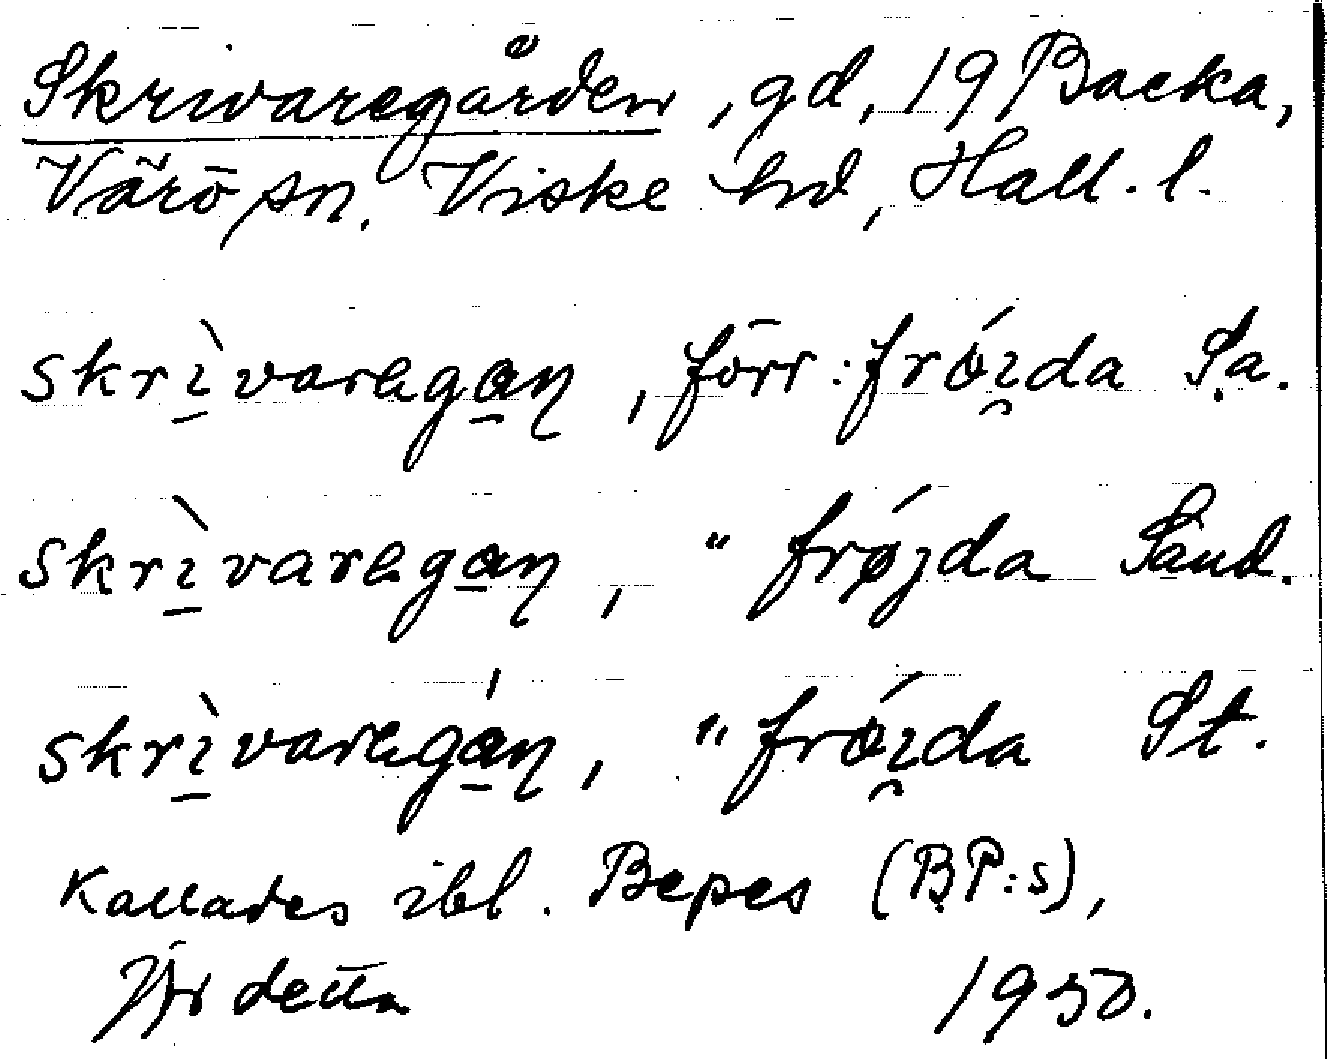 Skrivaregården, gd, 19 Backa,
Värö sn. Viske hd, Hall. l.
skrì̱varəga̱ņ, förr: frói̯da Sa.
skrì̱varəga̱ņ, " frǿjda Sand.
skrì̱varəgá̱ņ, " frói̯da St.
Kallades ibl. Bepes (BP:s),
Jfr detta 1950.